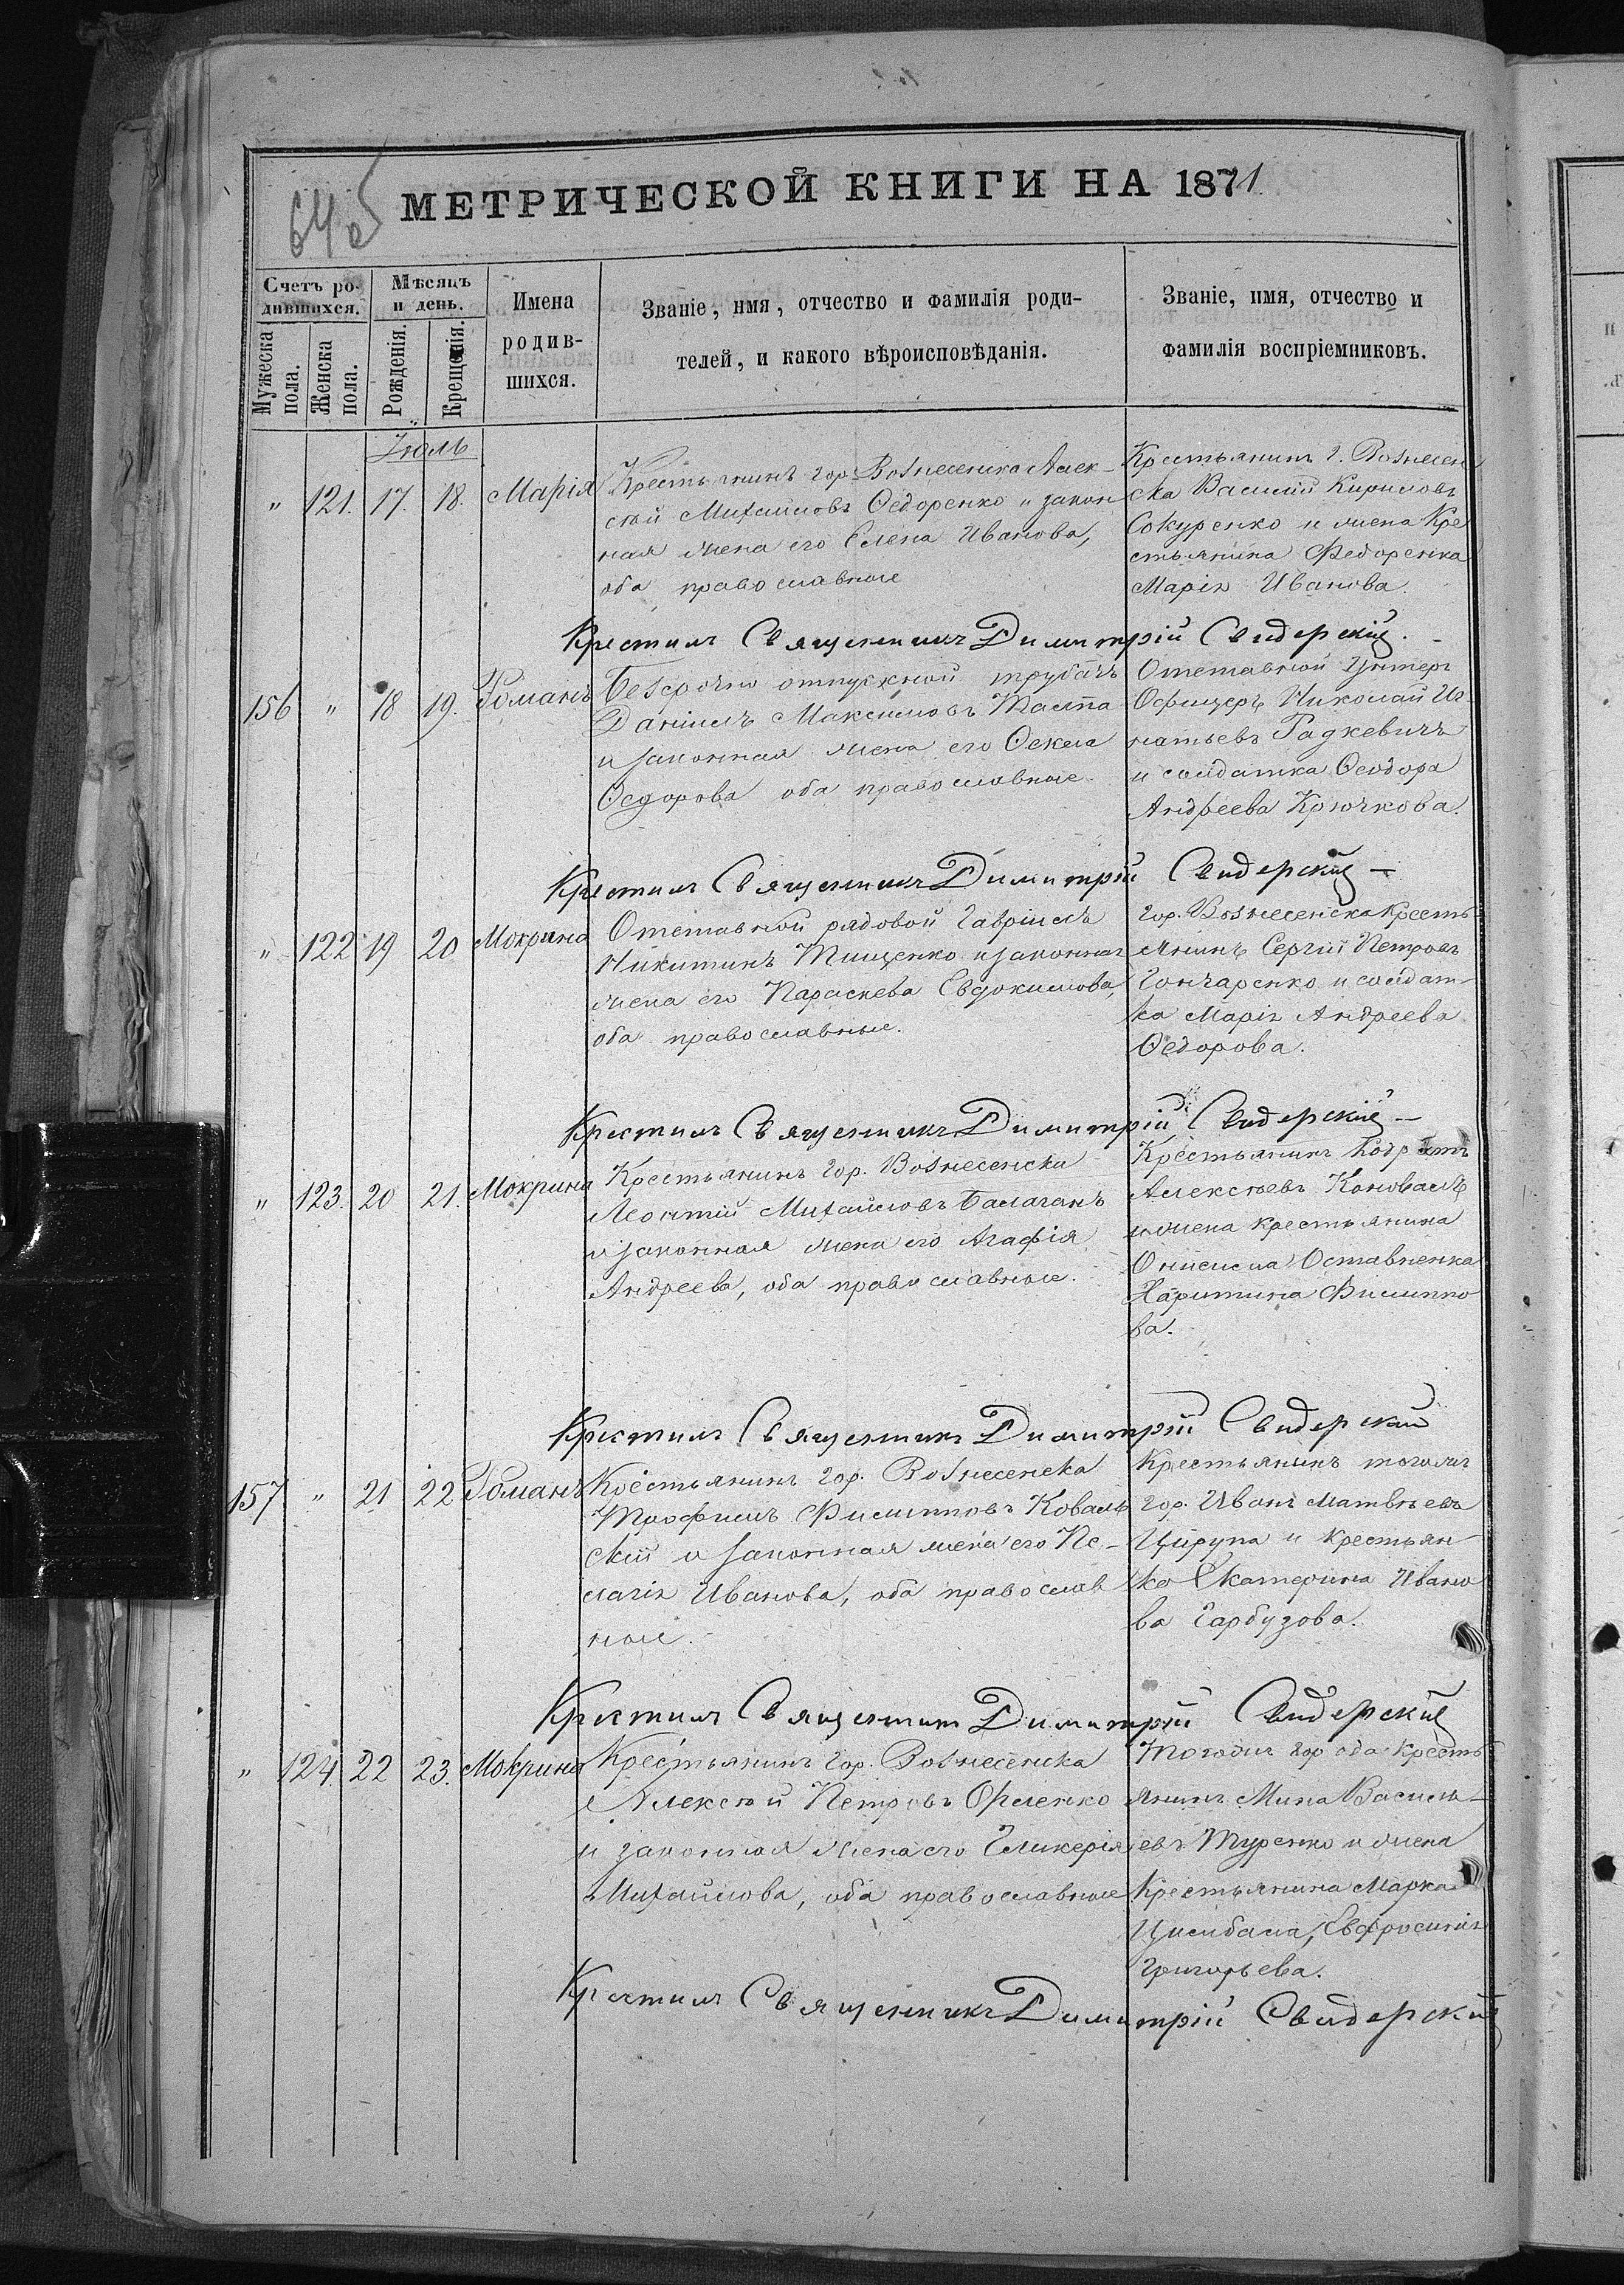 64 об
МЕТРИЧЕСКОЙ КНИГИ НА 1871.
Счетъ ро-
дившихся.
Мужеска
пола.
Женска
пола.
Мѣсяцъ
и день.
Рожденія.
Крещенія.
Имена
родив-
шихся.
Званіе, имя, отчество и фамилія роди-
телей, и какого вѣроисповѣданія.
Званіе, имя, отчество и
фамилія воспріемниковъ.
Іюль
" 121. 17. 18. Марія
Крестьянинъ гор. Вознесенска Алек-
сѣй Михайловъ Ѳедоренко и закон-
ная жена его Елена Иванова,
оба православные
Крестьянинъ г. Вознесен
ска Василій Кириловъ
Сокуренко и жена Кре
стьянина Федоренка
Марія Иванова.
Крестилъ Священникъ Димитрій Свидерскій.
156 " 18 19. Романъ
Безсрочно отпускной трубачъ
Даніилъ Максимовъ
и законная жена его Ѳекла
Ѳедорова оба православные
Отставной Унтеръ
Офицеръ Николай Иг-
натьевъ Радкевичъ
и солдатка Ѳеодора
Андреева Крючкова.
Крестилъ Священникъ Димитрій Свидерскій —
" 122 19 20 Мокрина
Отставной рядовой Гавріилъ
Никитинъ Тищенко и законная
жена его Параскева Евдокимова,
оба православные.
гор. Вознесенска Кресть-
янинъ Сергій Петровъ
Гончаренко и солдат-
ка Марія Андреева
Ѳедорова.
Крестилъ Священникъ Димитрій Свидерскій —
" 123. 20 21. Мокрина
Крестьянинъ гор. Вознесенска
Леонтій Михайловъ Балаганъ
и законная жена его Агафія
Андреева, оба православные.
Крестьянинъ Кодратъ
Алексѣевъ Коновалъ
и жена крестьянина
Онисима Оставненка
Харитина Филиппо
ва.
Крестилъ Священникъ Димитрій Свидерскій
157 " 21 22 Романъ
Крестьянинъ гор. Вознесенска
Трофимъ Филипповъ Коваль
скій и законная жена его Пе-
лагія Иванова, оба православ
ные.
Крестьянинъ тогожъ
гор. Иванъ Матвѣевъ
Цюрупа и крестьян-
ка Екатерина Ивано
ва Гарбузова.
Крестилъ Священникъ Димитрій Свидерскій
" 124. 22 23. Мокрина
Крестьянинъ гор. Вознесенска
Алексѣй Петровъ Орленко
и законная жена его Гликерія
Михайлова, оба православные
Тогожъ города кресть
янинъ Мина Василь-
евъ Туренко и жена
Крестьянина Марка
Цимбала, Евфросинія
Григорьева.
Крестилъ Священникъ Димитрій Свидерскій